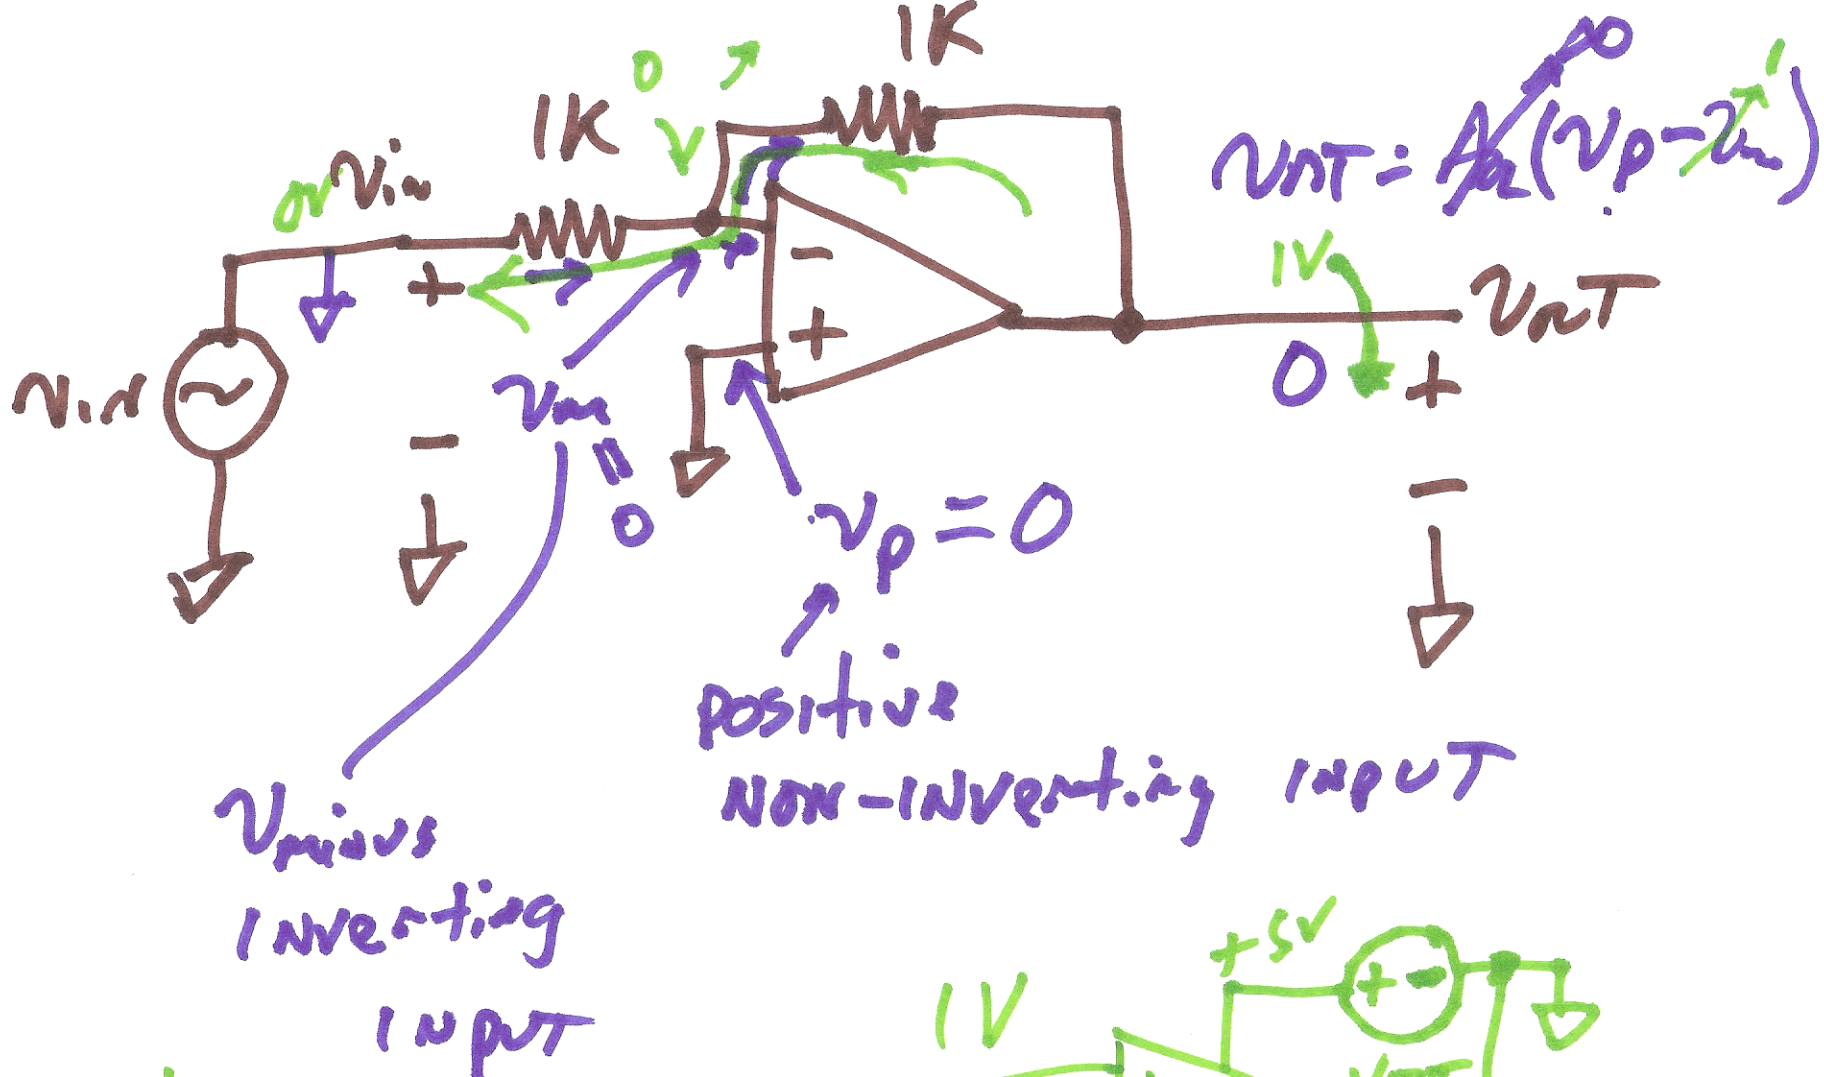 1K
0
1K
∞
V
0V
vin
vOUT = AOL(vp - vm)
+
-
1V
vOUT
vin
+
0
+
-
vm
=
0
vp = 0
-
positive
NON-INVerting INPUT
Vminus
INVerting
INPUT
+5V
+ -
1V